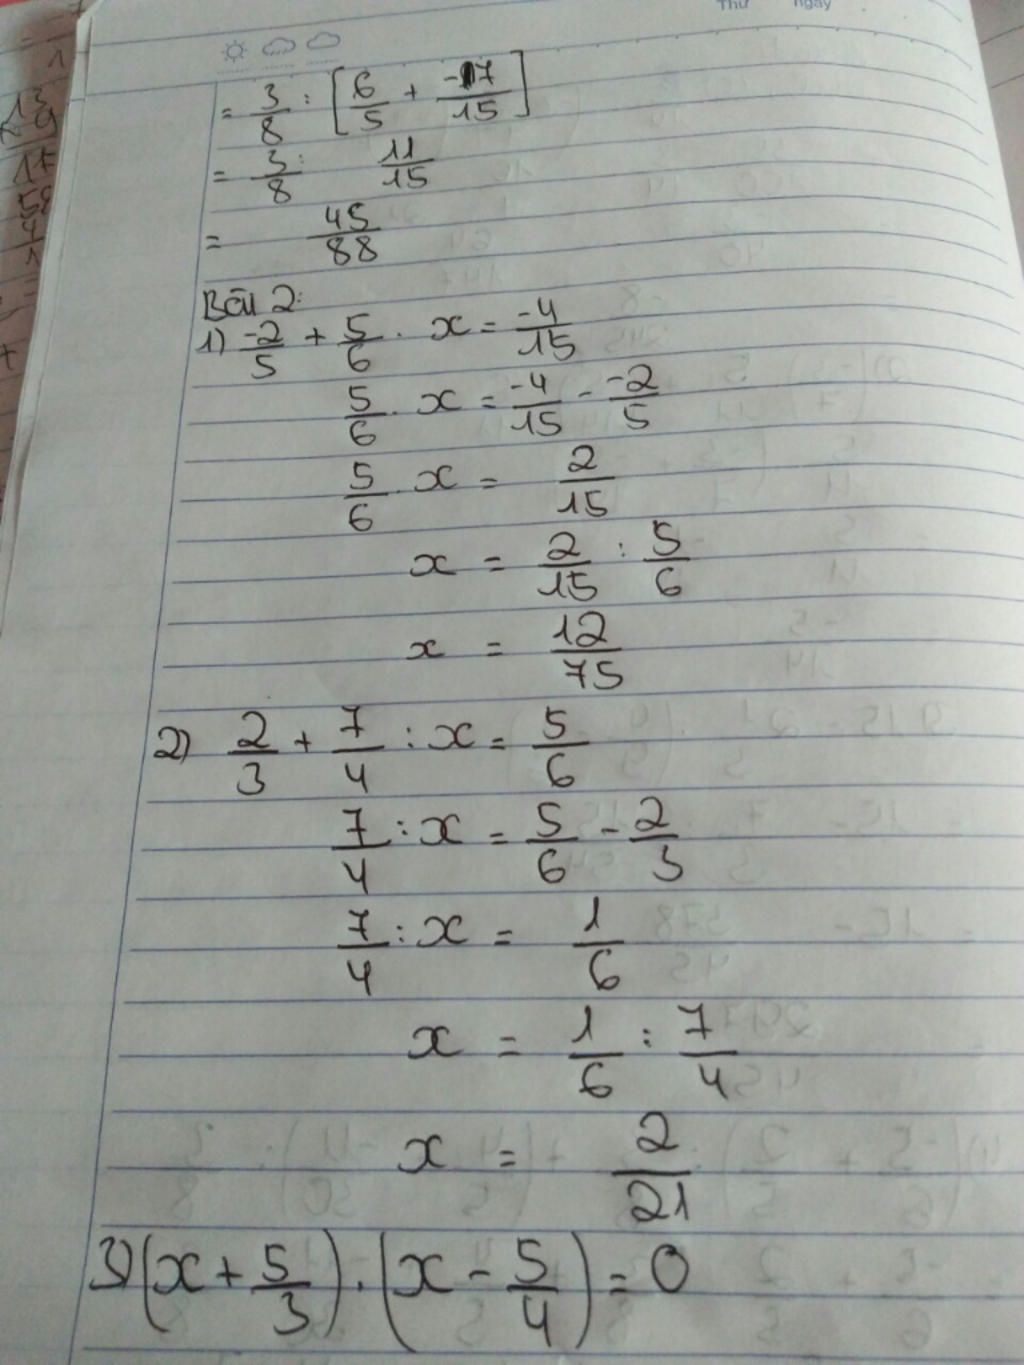 Thứ ngày
= 3/8 : [6/5 + -7/15]
= 3/8 : 11/15
= 45/88
Bài 2:
1) -2/5 + 5/6 . x = -4/15
5/6 . x = -4/15 - -2/5
5/6 . x = 2/15
x = 2/15 : 5/6
x = 12/75
2) 2/3 + 7/4 : x = 5/6
7/4 : x = 5/6 - 2/3
7/4 : x = 1/6
x = 1/6 : 7/4
x = 2/21
3) (x + 5/3) . (x - 5/4) = 0